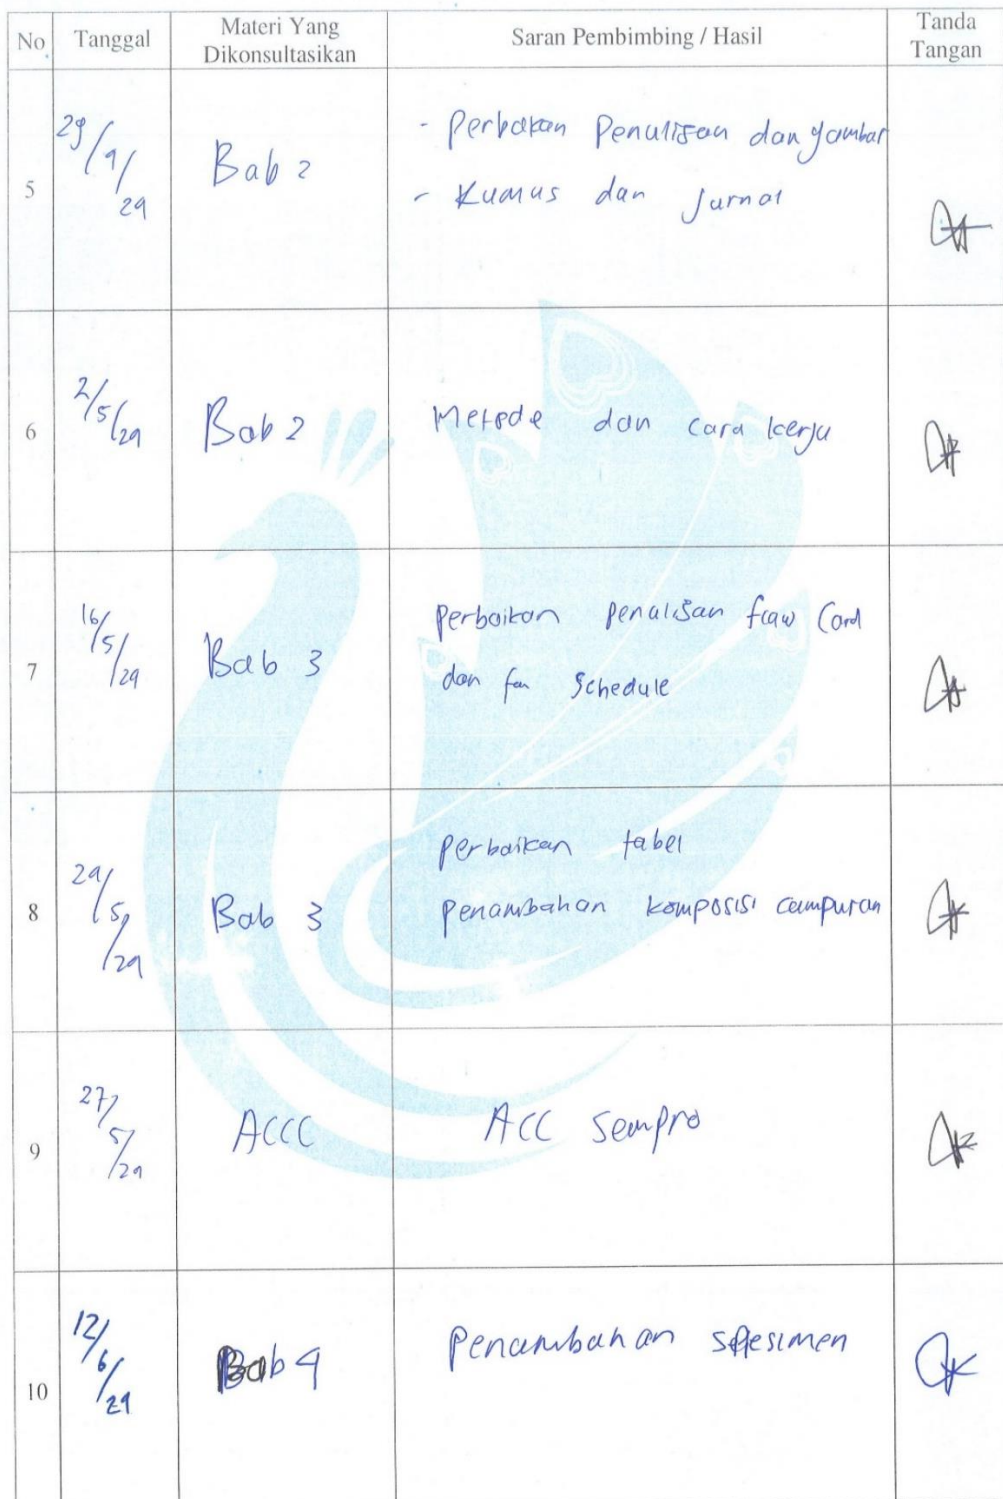 No Tanggal Materi Yang Dikonsultasikan Saran Pembimbing / Hasil Tanda Tangan
5 29/4/24 Bab 2 - Perbakan Penulisan dan gambar
- Rumus dan Jurnal
6 2/5/24 Bab 2 Metode dan cara kerja
7 16/5/24 Bab 3 Perbaikan penulisan flaw Card
dan schedule
8 24/5/24 Bab 3 Perbaikan tabel
Penambahan komposisi campuran
9 27/5/24 ACCC ACC Sempro
10 12/6/24 Bab 4 Penambahan spesimen